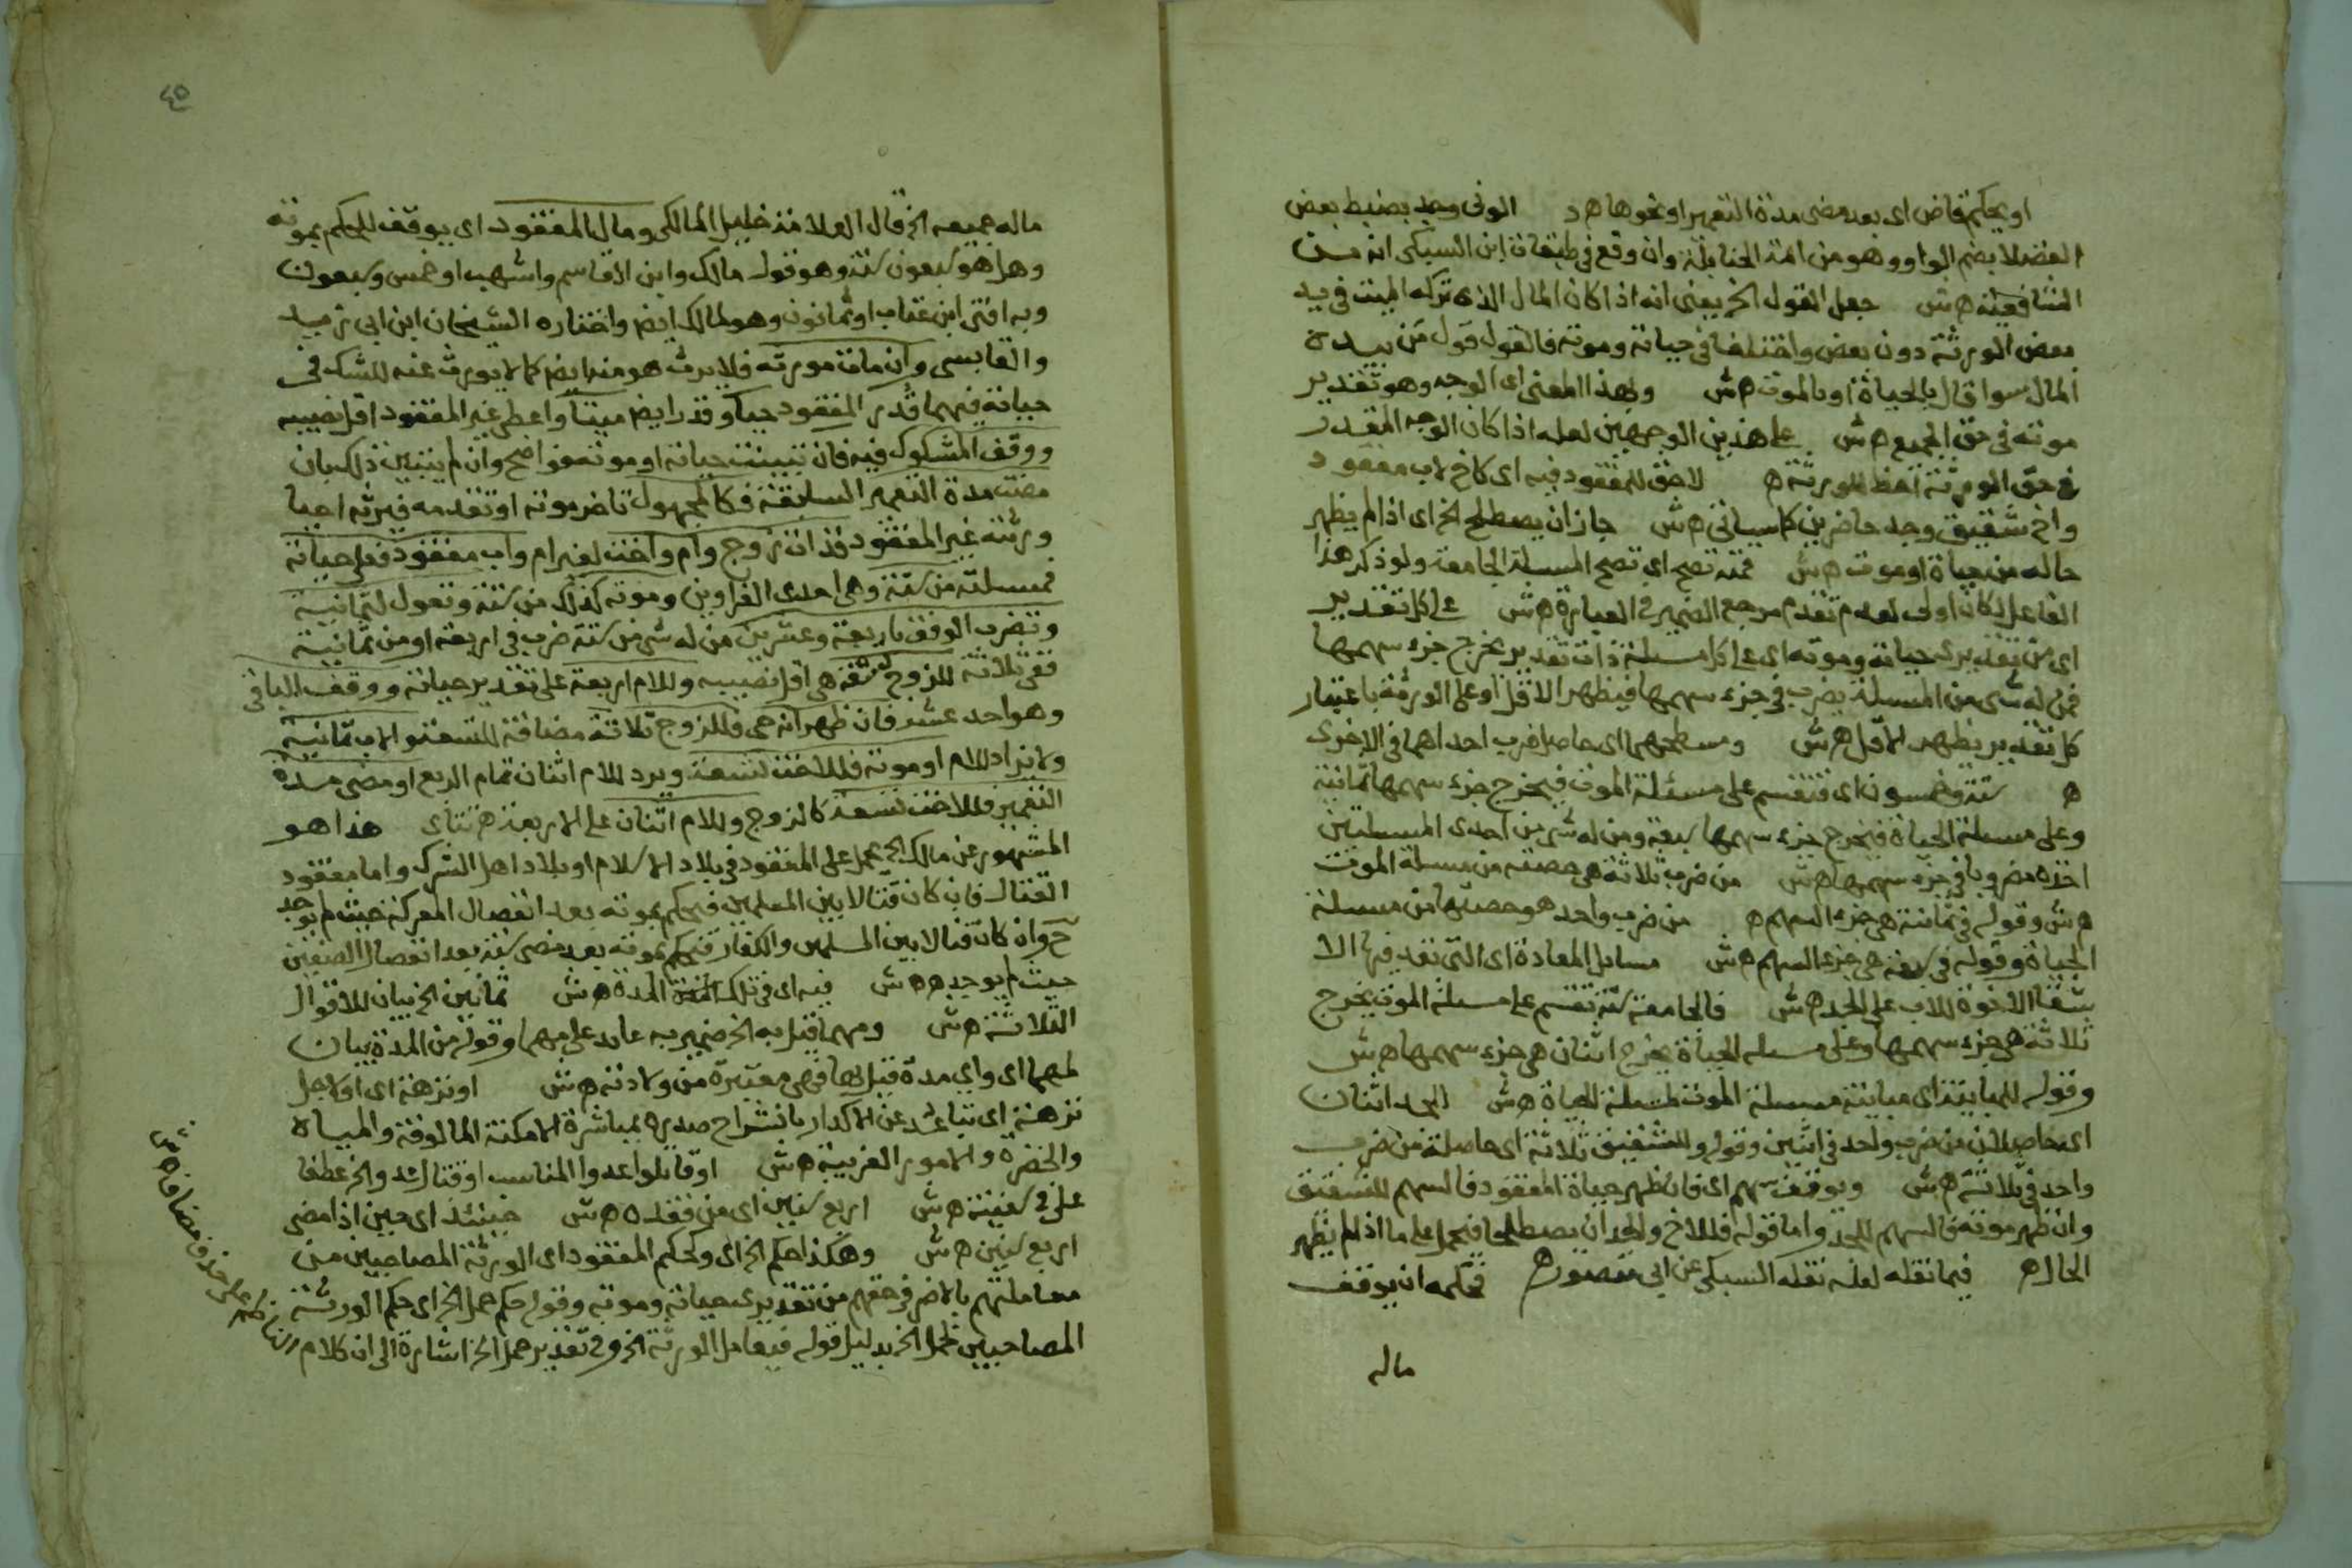 او يحكم قاض اى بعد مضى مدة التعمير او نحوها هـ د الونى وجد بضبط بعض
الفضلا بضم الواو وهو من ائمة الحنابلة وان وقع فى طبقات ابن السبكى انه من
الشافعية هـ ش جعل القول الخ يعنى انه اذا كان المال الذى تركه الميت فى يد
بعض الورثة دون بعض واختلفا فى حياته وموته فالقول قول من بيده
المال سوا قال بالحياة او بالموت هـ ش وبهذا المعنى اى الوجه وهو تقدير
موته فى حق الجميع هـ ش على هذين الوجهين لعله اذا كان الوجه المقدر
فى حق الورثة احظ للورثة هـ لاحق للمفقود فيه اى كاخ لاب مفقود
واخ شقيق وجد حاضرين كما سياتى هـ ش جاز ان يصطلح الخ اى اذا لم يظهر
حاله من حياة او موت هـ ش فمنه تصح اى تصح المسيلة الجامعة ولو ذكر هذا
الفاعل لكان اولى لعدم تقدم مرجع الضمير فى العبارة هـ ش على كل تقدير
اى من تقديرى حياته وموته اى على كل مسيلة ذات تقدير يخرج جزء سهمها
فمن له شى من المسيلة يضرب فى جزء سهمها فيظهر الاقل او على الورثة باعتبار
كل تقدير يظهر الاقل هـ ش ومسطحهما اى حاصل ضرب احداهما فى الاخرى
هـ ستة وخمسون اى فتقسم على مسئلة الموت فيخرج جزء سهمها ثمانية
وعلى مسيلة الحياة فيخرج جزء سهمها سبعة ومن له شى من احدى المسيلتين
اخذه مضروبا فى جزء سهمها هـ ش من ضرب ثلاثة هى حصته من مسيلة الموت
هـ ش وقوله فى ثمانية هى جزء السهم هـ من ضرب واحد هو حصتها من مسيلة
الحياة وقوله فى سبعة هى جزء السهم هـ ش مسايل المعادة اى التى تعد فيها الا
شقا الاخوة للاب على الجد هـ ش فالجامعة ستة تقسم على مسيلة الموت يخرج
ثلاثة هى جزء سهمها وعلى مسيله الحياة يخرج اثنان هى جزء سهمها هـ ش
وقوله للمباينة اى مباينة مسيلة الموت لمسيلة الحياة هـ ش الجد اثنان
اى حاصلان من ضرب واحد فى اثنين وقوله وللشقيق ثلاثة اى حاصلة من ضرب
واحد فى ثلاثة هـ ش ويوقف سهم اى فان ظهر حياة المفقود فالسهم للشقيق
وان ظهر موته فالسهم للجد واما قوله فللاخ والجد ان يصطلحا فيحمل على ما اذا لم يظهر
الحال هـ فيما نقله لعله نقله السبكى عن ابى منصور هـ فحكمه ان يوقف
ماله
٤٥
ماله جميعه الخ قال العلامة خليل المالكى ومال المفقود اى يوقف للحكم بموته
وهل هو سبعون سنة وهو قول مالك وابن القاسم واشهب او خمس وسبعون
وبه افتى ابن عتاب او ثمانون وهو لمالك ايض واختاره الشيخان ابن ابى زيد
والقابسى وان مات مورثه فلا يرث هو منه ايض كما لا يورث عنه للشك فى
حياته فيهما قدر المفقود حيا وقدر ايض ميتا واعطى غير المفقود اقل نصيبيه
ووقف المشكوك فيه فان تبينت حياته او موته فواضح وان لم يتبين ذلك بان
مضت مدة التعمير السابقة فكالمجهول تاخر موته او تقدمه فيرثه احيا
ورثته غير المفقود فذات زوج وام واخت لغير ام واب مفقود فعلى حياته
فمسيلته من ستة وهى احدى الغراوين وموته كذلك من ستة وتعول لثمانية
وتضرب الوفق باربعة وعشرين من له شى من ستة ضرب فى اربعة او من ثمانية
ففى ثلاثة للزوج تسعة هى اقل نصيبيه وللام اربعة على تقدير حياته ووقف الباقى
وهو احد عشر فان ظهر انه حى فللزوج ثلاثة مضافة للتسعة والاب ثمانية
ولا يزاد للام او موته فللاخت تسعة ويرد للام اثنان تمام الربع او مضى مدة
التعمير فللاخت تسعة كالزوج وللام اثنان على الاربعة هـ تتاى هذا هو
المشهور عن مالك الخ يحمل على المفقود فى بلاد الاسلام او بلاد اهل الشرك واما مفقود
القتال فان كان قتالا بين المسلمين فيحكم بموته بعد انفصال المعركة حيث لم يوجد
ح وان كان قتالا بين المسلمين والكفار فيحكم بموته بعد مضى سنة بعد انفصال الصفين
حيث لم يوجد هـ هـ ش فيه اى فى تلك المدة هـ ش ثمانين الخ بيان للاقوال
الثلاثة هـ ش ومهما قيل به الخ ضمير به عايد على مهما وقوله من المدة بيان
لمهما اى واى مدة قيل بها فهى معتبرة من ولادته هـ ش او نزهة اى او لاجل
نزهة اى تباعد عن الاكدار بانشراح صدره بمباشرة الامكنة المالوفة والمياه
والخضره والامور الغريبة هـ ش او قاتلوا عدوا المناسب او قتال عدو الخ عطفا
على فى سفينة هـ ش اربع سنين اى من فقده هـ ش حينئذ اى حين اذا مضى
اربع سنين هـ ش وهكذا حكم الخ اى وكحكم المفقود اى الورثة المصاحبين من
معاملتهم بالاضر فى حقهم من تقديرى حياته وموته وقوله حكم حمل الخ اى حكم الورثة
المصاحبين لحمل الخ بدليل قوله فيعامل الورثة الخ وفى تقدير حمل الخ اشارة الى ان كلام
على حذف مضاف هـ ش